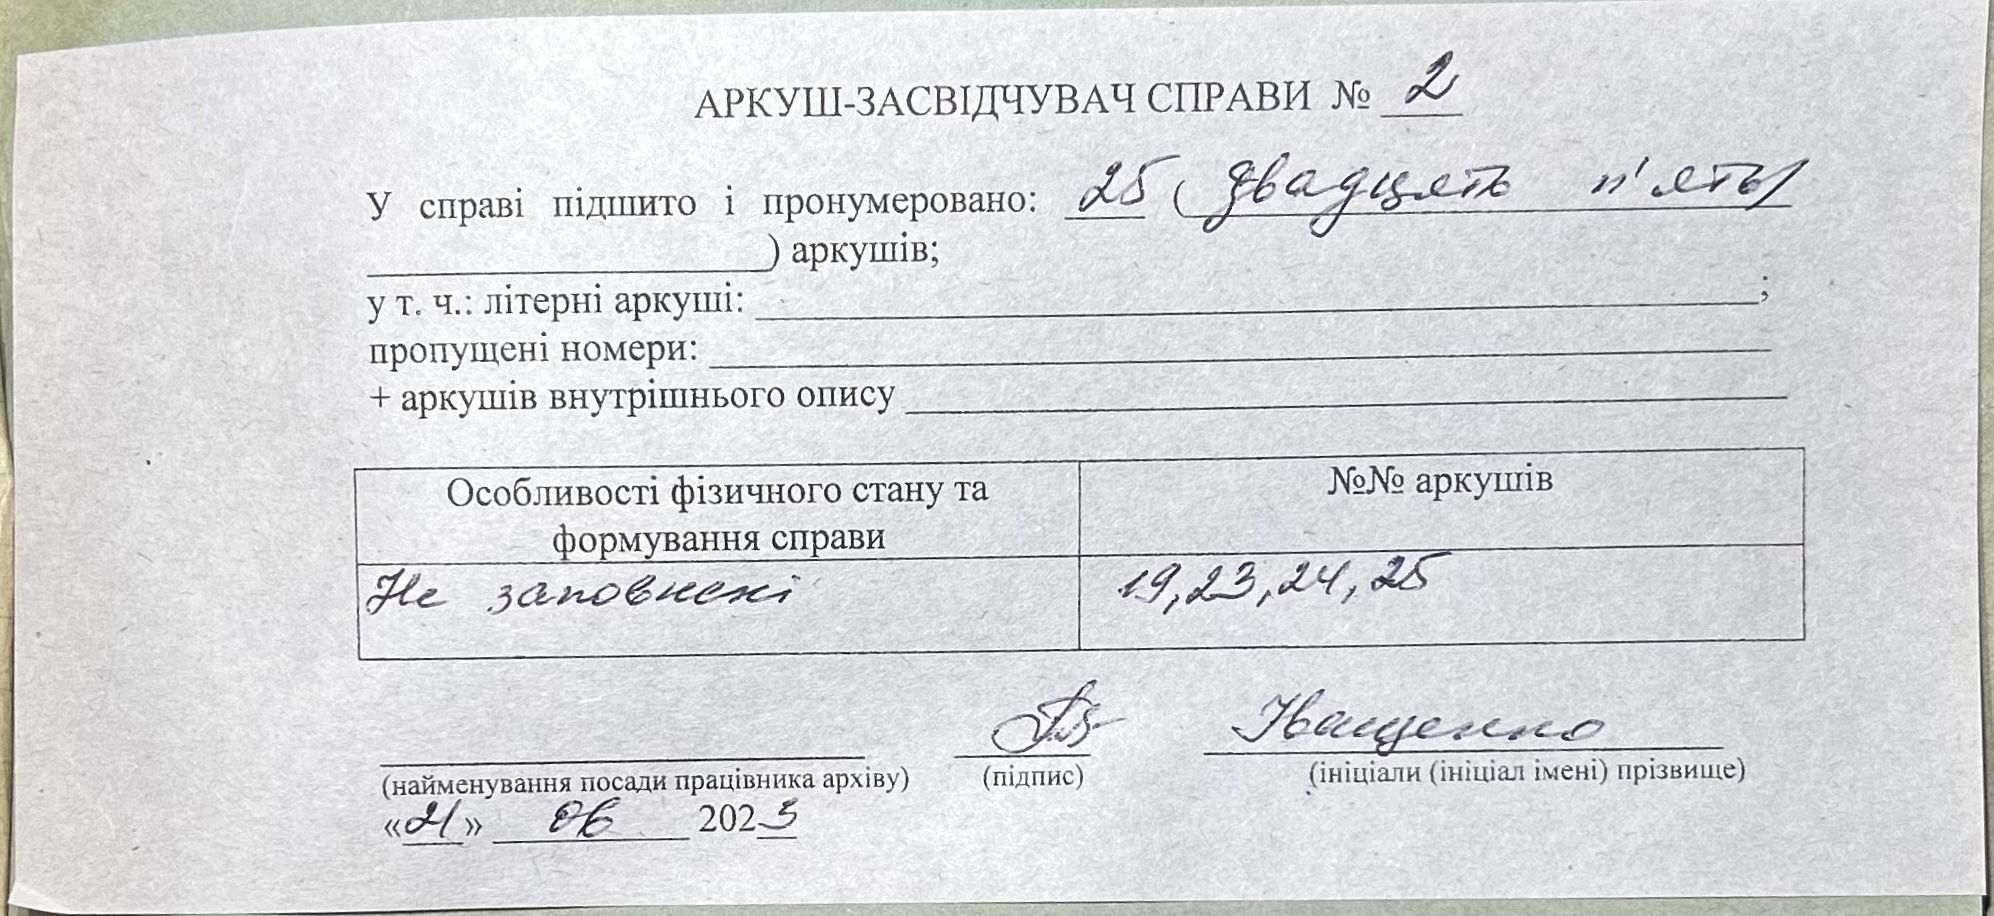 АРКУШ-ЗАСВІДЧУВАЧ СПРАВИ № 2
У справі підшито і пронумеровано: 25 (двадцять п'ять)
) аркушів;
у т. ч.: літерні аркуші: ;
пропущені номери:
+ аркушів внутрішнього опису
Особливості фізичного стану та формування справи
№№ аркушів
Не заповнені
19, 23, 24, 25
Іващенко
(найменування посади працівника архіву) (підпис) (ініціали (ініціал імені) прізвище)
«21» 06 2023